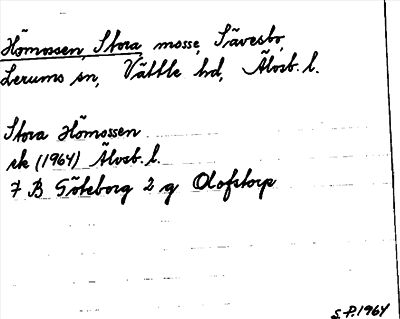 Hömossen, Stora, mosse, Sävesbo,
Lerums sn, Vättle hd, Älvsb. l.
Stora Hömossen
ek (1964) Älvsb. l.
7 B Göteborg 2 g Olofstorp
S.P. 1964